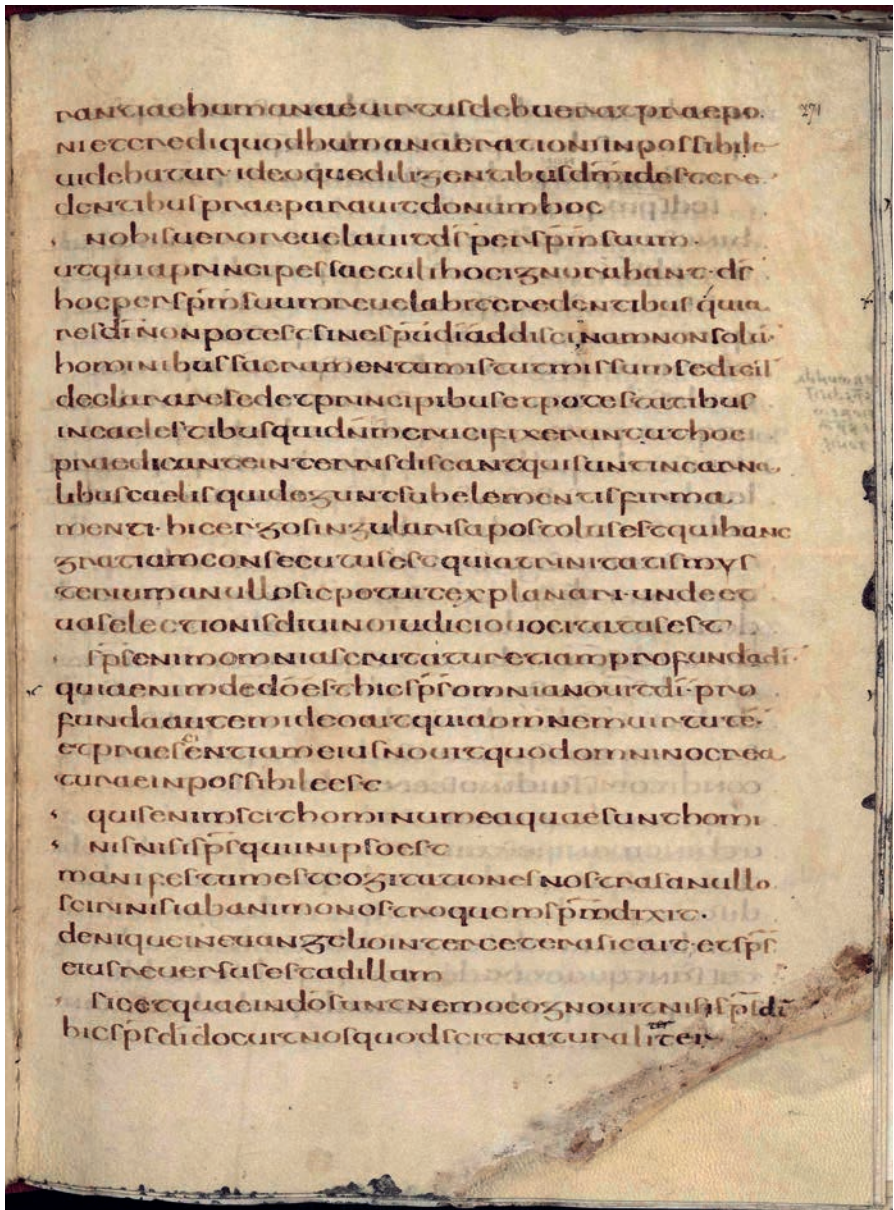 rantiaehumanaeuirtusdebueratpraepo
271
nietcrediquodhumanaerationiinpossibile
uidebaturideoquediligentibusdm̄idestcre
dentibuspraeparauitdonumhoc
nobisueroreuelauitds̄perspm̄suum·
utquiaprincipessaeculihocignorabant·ds̄
hocperspm̄suumreuelabitcredentibusquia
resdī nonpotestsinespūdīaddiscinamnonsolū·
hominibussacramentumistutmissumsedicit
declararesedetprincipibusetpotestatibus
incaelestibusquidn̄mcrucifixeruntuthoc
praedicanteinterrisdiscantquisuntincarna
libuscaelisquideguntsubelementisfirma
menti·hicergosingularisapostolusestquihanc
gratiamconsecutusestquiatrinitatismys
teriumanullosicpotuitexplanari·undeet
uaselectionisdiuinoiudiciouocitatusest
sps̄enimomniascrutaturetiamprofundadī·
quiaenimdedōesthicsps̄omnianouitdī·pro
fundaautemideoaitquiaomnemuirtutē·
etpraesentiameiusnouitquodomninocrea
turaeinpossibileest
quisenimscithominumeaquaesunthomi
nisnisisps̄quiinipsoest
manifestumestcogitationesnostrasanullo
scirinisiabanimonostroquemspm̄dixit·
deniqueineuangeliointerceterasicait·etsps̄
eiusreuersusestadillam
sicetquaeindōsuntnemocognouitnisisps̄dī
hicsps̄dīdocuitnosquodscitnaturaliter